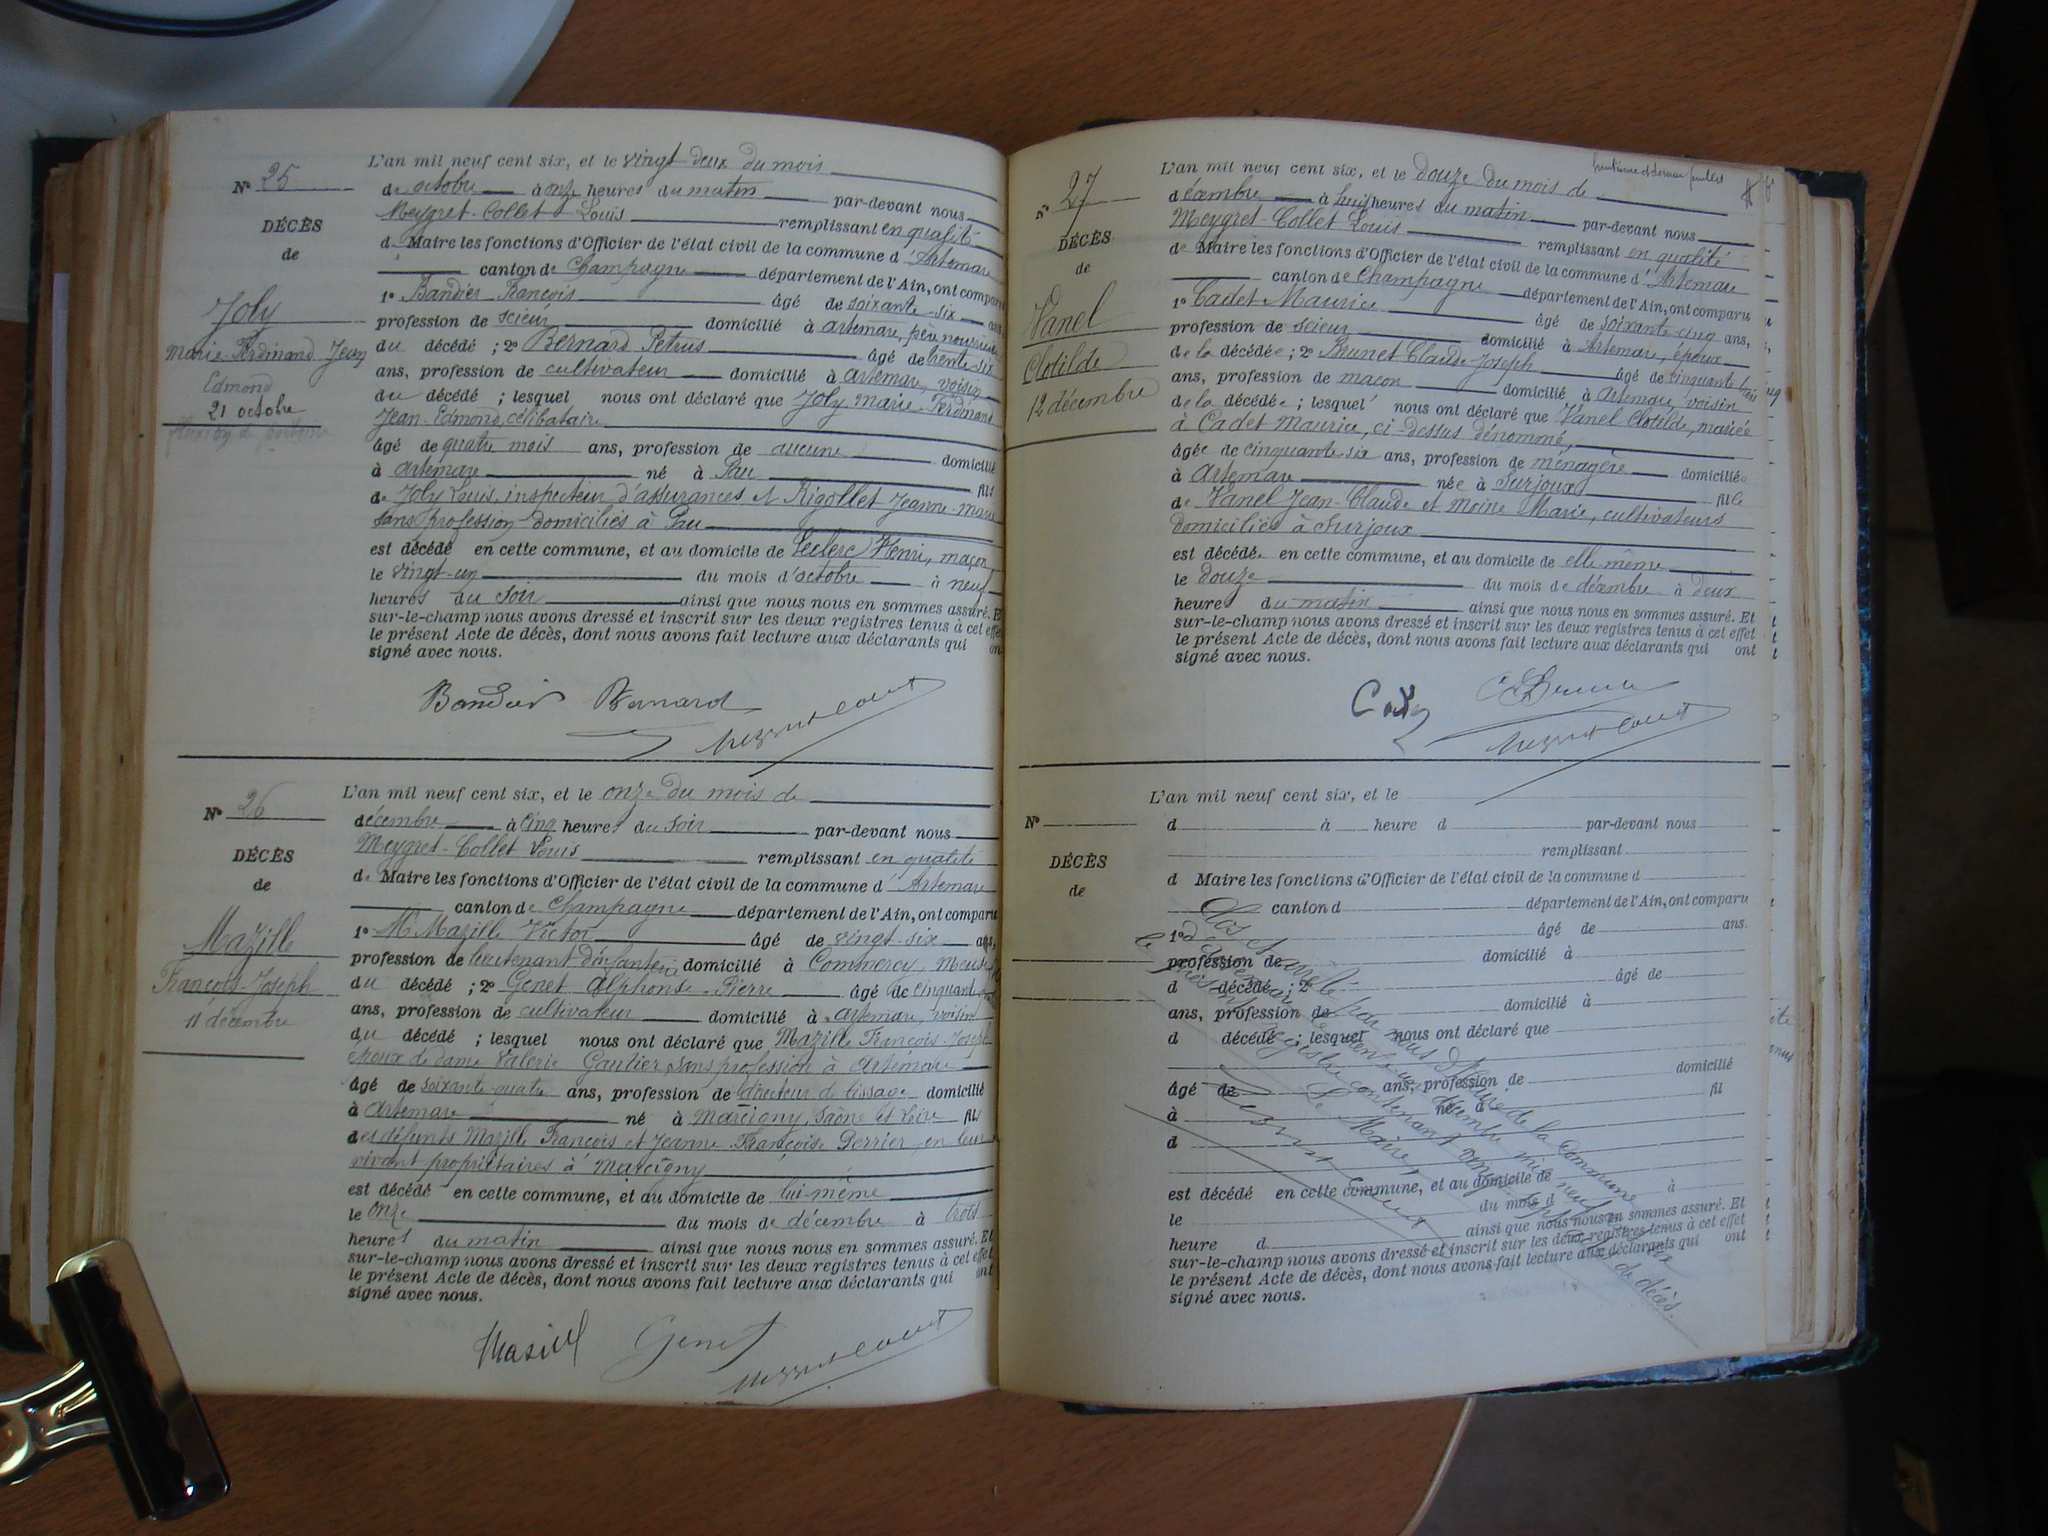 N° 25
DÉCÈS
de
Joly
Marie Ferdinand Jean
Edmond
21 octobre
L'an mil neuf cent six, et le vingt deux du mois
de octobre à onze heures du matin par-devant nous
Meygret-Collet Louis remplissant en qualité
de Maire les fonctions d'Officier de l'état civil de la commune d'Artemare
canton de Champagne département de l'Ain, ont comparu
1° Bandier François âgé de soixante-six ans
profession de scieur domicilié à artemare, père nourricier
du décédé ; 2° Bernard Petrus âgé de trente-six
ans, profession de cultivateur domicilié à artemare, voisin
du décédé ; lesquel nous ont déclaré que Joly Marie-Ferdinand
Jean-Edmond, célibataire
âgé de quatre mois ans, profession de aucune domicilié
à artemare né à Pau fils
de Joly Louis, inspecteur d'assurances et Rigollet Jeanne-Marie
sans profession domiciliés à Pau
est décédé en cette commune, et au domicile de Leclerc Henri, maçon,
le vingt-un du mois d'octobre à neuf
heures du soir ainsi que nous nous en sommes assuré. Et
sur-le-champ nous avons dressé et inscrit sur les deux registres tenus à cet effet
le présent Acte de décès, dont nous avons fait lecture aux déclarants qui ont
signé avec nous.
Bandier Bernard
Meygret-Collet
N° 26
DÉCÈS
de
Mazille
François-Joseph
11 décembre
L'an mil neuf cent six, et le onze du mois de
décembre à cinq heures du soir par-devant nous
Meygret-Collet Louis remplissant en qualité
de Maire les fonctions d'Officier de l'état civil de la commune d'Artemare
canton de Champagne département de l'Ain, ont comparu
1° M Mazille Victor âgé de vingt-six ans,
profession de lieutenant d'infanterie domicilié à Commercy, Meuse
du décédé ; 2° Genet Alphonse-Pierre âgé de cinquante
ans, profession de cultivateur domicilié à artemare, voisin
du décédé ; lesquel nous ont déclaré que Mazille François-Joseph
époux de dame Valerie Gautier sans profession à Artemare
âgé de soixante-quatre ans, profession de directeur de tissage domicilié
à Artemare né à Marcigny, Saône et Loire fils
des défunts Mazille François et Jeanne-Françoise Perrier, en leur
vivant propriétaires à Marcigny
est décédé en cette commune, et au domicile de lui-même
le onze du mois de décembre à trois
heures du matin ainsi que nous nous en sommes assuré. Et
sur-le-champ nous avons dressé et inscrit sur les deux registres tenus à cet effet
le présent Acte de décès, dont nous avons fait lecture aux déclarants qui ont
signé avec nous.
Mazille Genet
Meygret-Collet
huitième et dernier feuillet
N° 27
DÉCÈS
de
Vanel
Clotilde
12 décembre
L'an mil neuf cent six, et le douze du mois de
décembre à huit heures du matin par-devant nous
Meygret-Collet Louis remplissant en qualité
de Maire les fonctions d'Officier de l'état civil de la commune d'Artemare
canton de Champagne département de l'Ain, ont comparu
1° Cadet Maurice âgé de soixante-cinq ans,
profession de scieur domicilié à Artemare, époux
de la décédée ; 2° Brunet Claude-Joseph âgé de cinquante trois
ans, profession de maçon domicilié à Artemare, voisin
de la décédée ; lesquel nous ont déclaré que Vanel Clotilde, mariée
à Cadet Maurice, ci-dessus dénommé,
âgée de cinquante-six ans, profession de ménagère domiciliée
à Artemare née à Surjoux fille
de Vanel Jean-Claude et Moine Marie, cultivateurs
domiciliés à Surjoux
est décédée en cette commune, et au domicile de elle même
le douze du mois de décembre à deux
heures du matin ainsi que nous nous en sommes assuré. Et
sur-le-champ nous avons dressé et inscrit sur les deux registres tenus à cet effet
le présent Acte de décès, dont nous avons fait lecture aux déclarants qui ont
signé avec nous.
Cadet C J Brunet
Meygret-Collet
N°
DÉCÈS
de
L'an mil neuf cent six, et le
d à heure d par-devant nous
remplissant
d Maire les fonctions d'Officier de l'état civil de la commune d
canton d département de l'Ain, ont comparu
1° âgé de ans.
profession de domicilié à
d décédé ; 2° âgé de
ans, profession de domicilié à
d décédé ; lesquel nous ont déclaré que
âgé de ans, profession de domicilié
à né à fil
d
est décédé en cette commune, et au domicile de
le du mois d à
heure d ainsi que nous nous en sommes assuré. Et
sur-le-champ nous avons dressé et inscrit sur les deux registres tenus à cet effet
le présent Acte de décès, dont nous avons fait lecture aux déclarants qui ont
signé avec nous.
Clos et arrêté par nous Maire de la Commune
d'Artemare le trente un décembre mil neuf cent six
le présent registre contenant vingt-sept actes de décès.
Le Maire,
Meygret-Collet